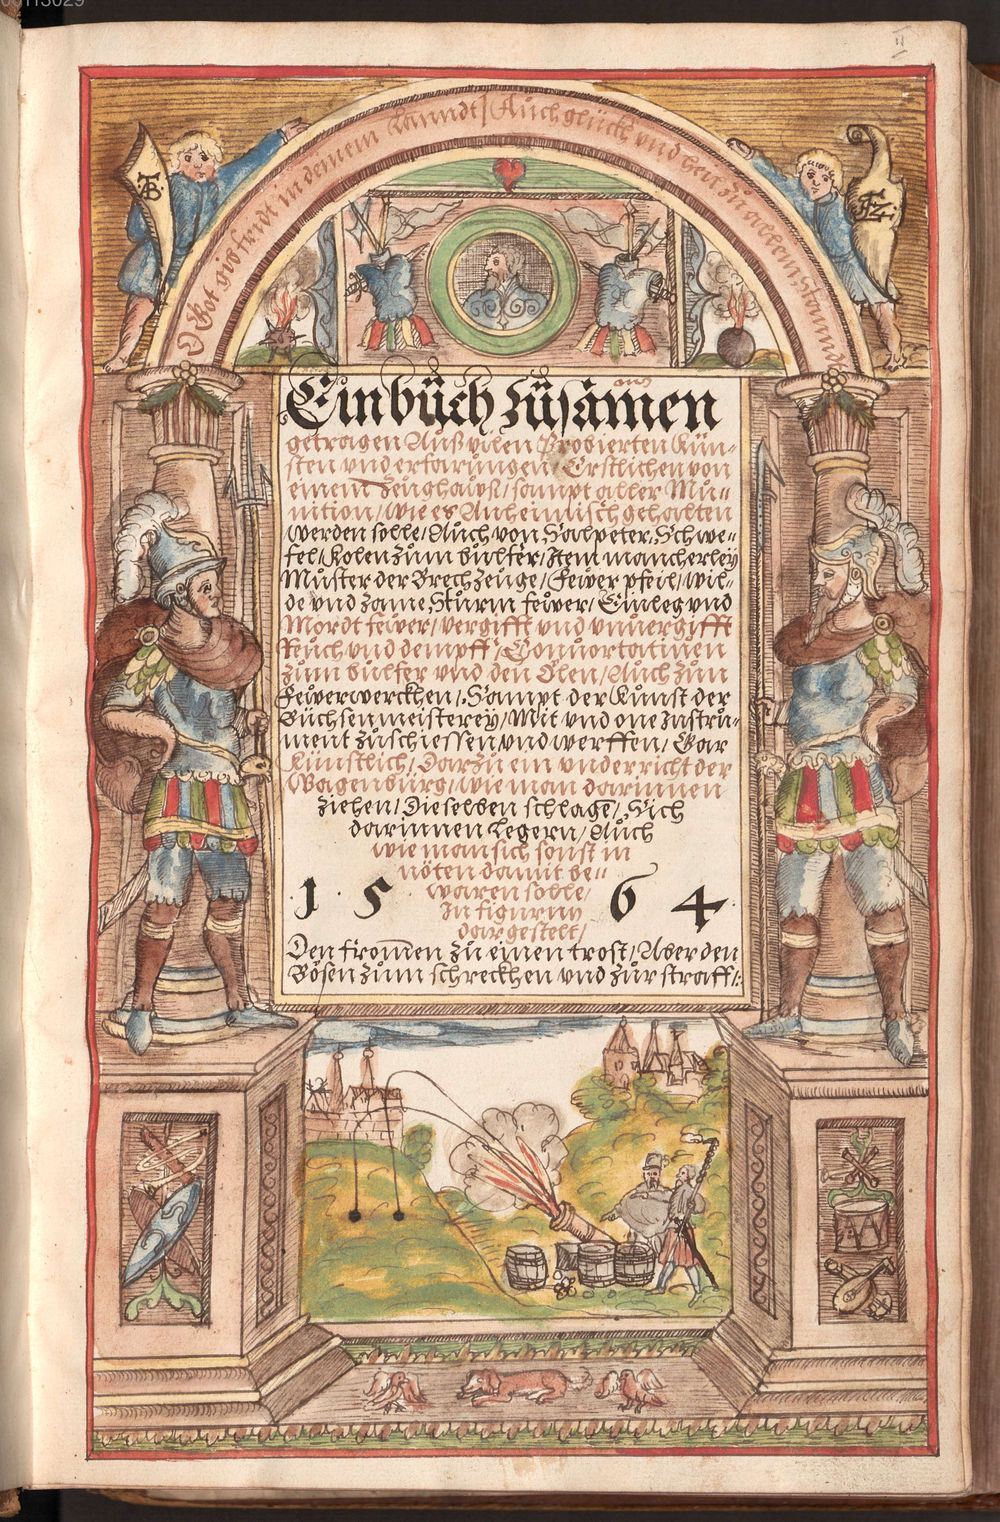 00113029
11
O Got gib fridt in deinem Lanndt / Auch glück vnd heil zu allem stanndt
AB
AZ
Ein büch züsamen
getragen Auß vilen Probierten Kün-
sten vnd erfarungen / Erstlichen von
einem Zeüghauß / sampt aller Mu-
nition / wie es Anheimisch gehalten
werden solle / Auch von Salpeter, Schwe-
fel / Kolen zum bulfer / Item mancherley
Muster der Brechzeuge / Fewer pfeil / wil-
de vnd zame, Sturm fewer / Einleg vnd
Mordt fewer / vergifft vnd vnuergifft
Reuch vnd dempff / Conuortatinen
zum bulfer vnd den Ölen / Auch zum
Fewerwerckhen / Sampt der Kunst der
Büchsenmeisterey / Mit vnd one Instru-
ment zuschiessen vnd werffen / Gar
künstlich / Darzu ein vnderricht der
Wagenburg / wie man darinnen
ziehen / Dieselben schlagē / Sich
darinnen Legern / Auch
wie man sich sonst in
nöten damit be-
waren solle /
1 5 6 4
In figuren
dargestelt /
Den from̄en zu einen trost / Aber den
Bösen zum schreckhen vnd zur straff /: